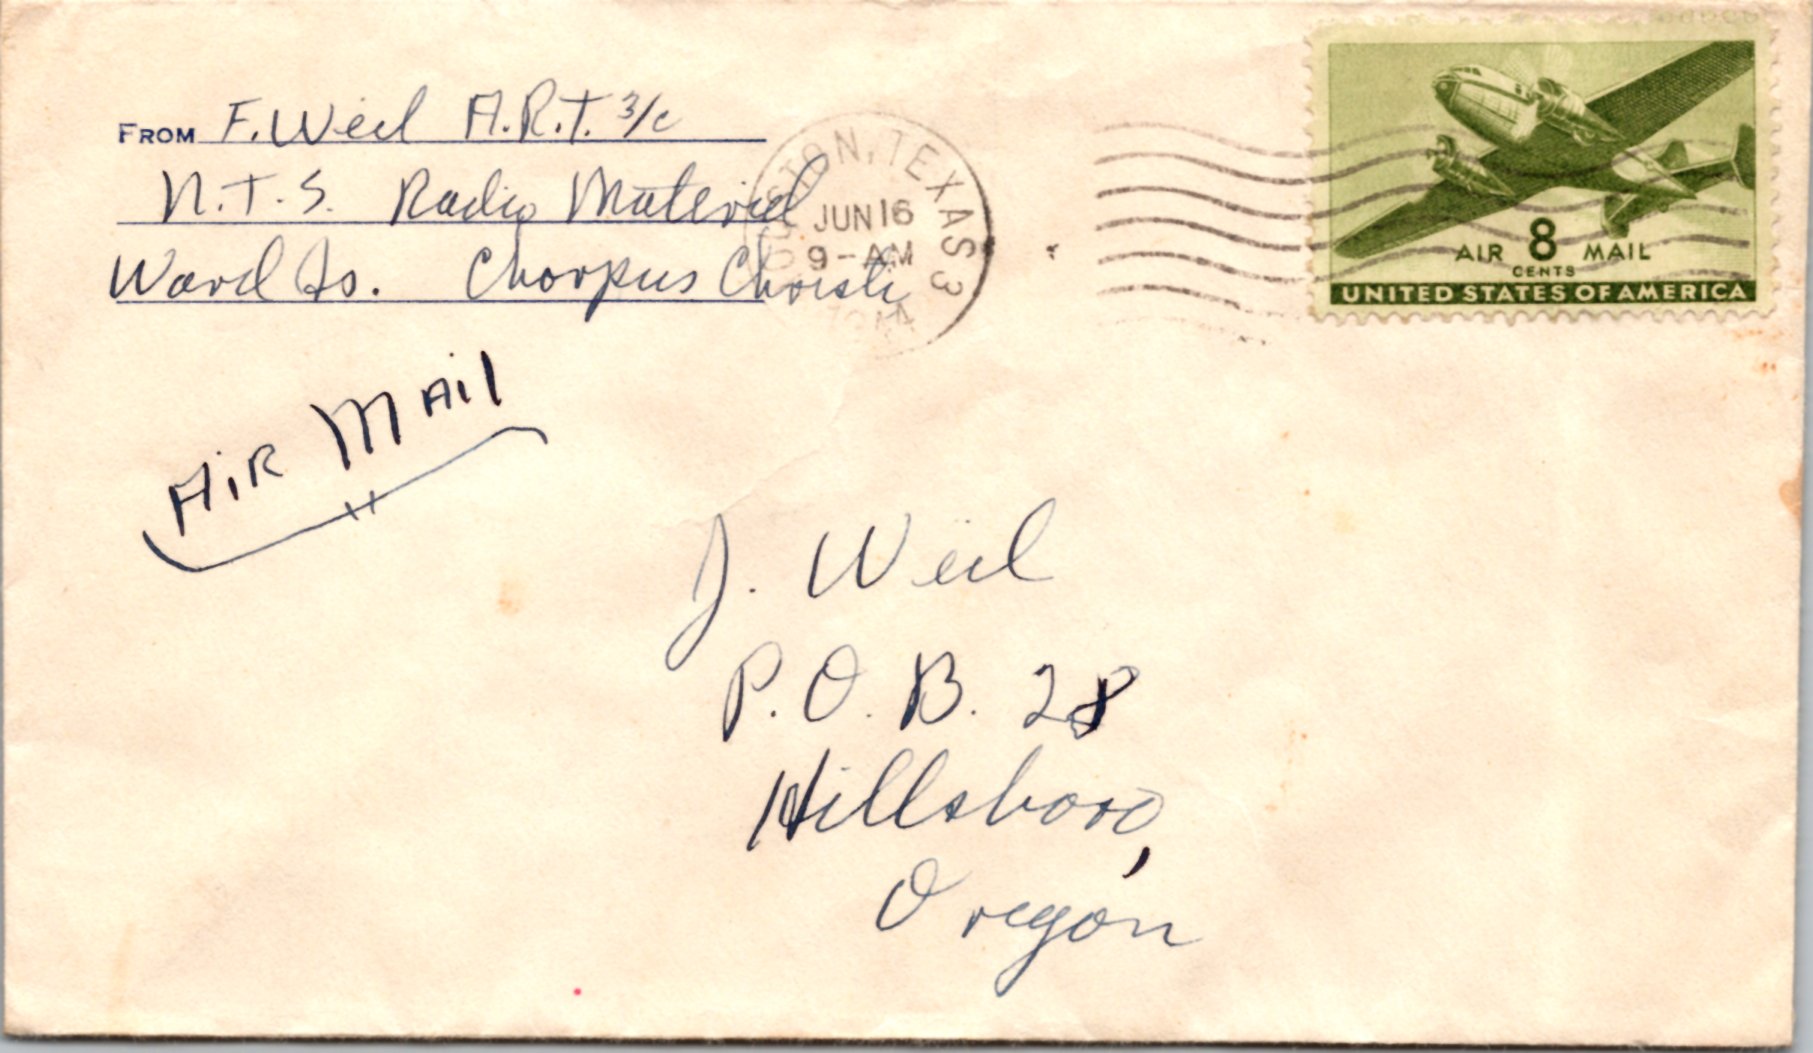 FROM F. Weil A.R.T. 3/c
N.T.S. Radio Material
Ward Is. Chorpus Christi
HOUSTON, TEXAS 3
JUN 16
9-AM
1944
AIR 8 MAIL
CENTS
UNITED STATES OF AMERICA
AIR MAIL
J. Weil
P.O.B. 28
Hillsboro,
Oregon